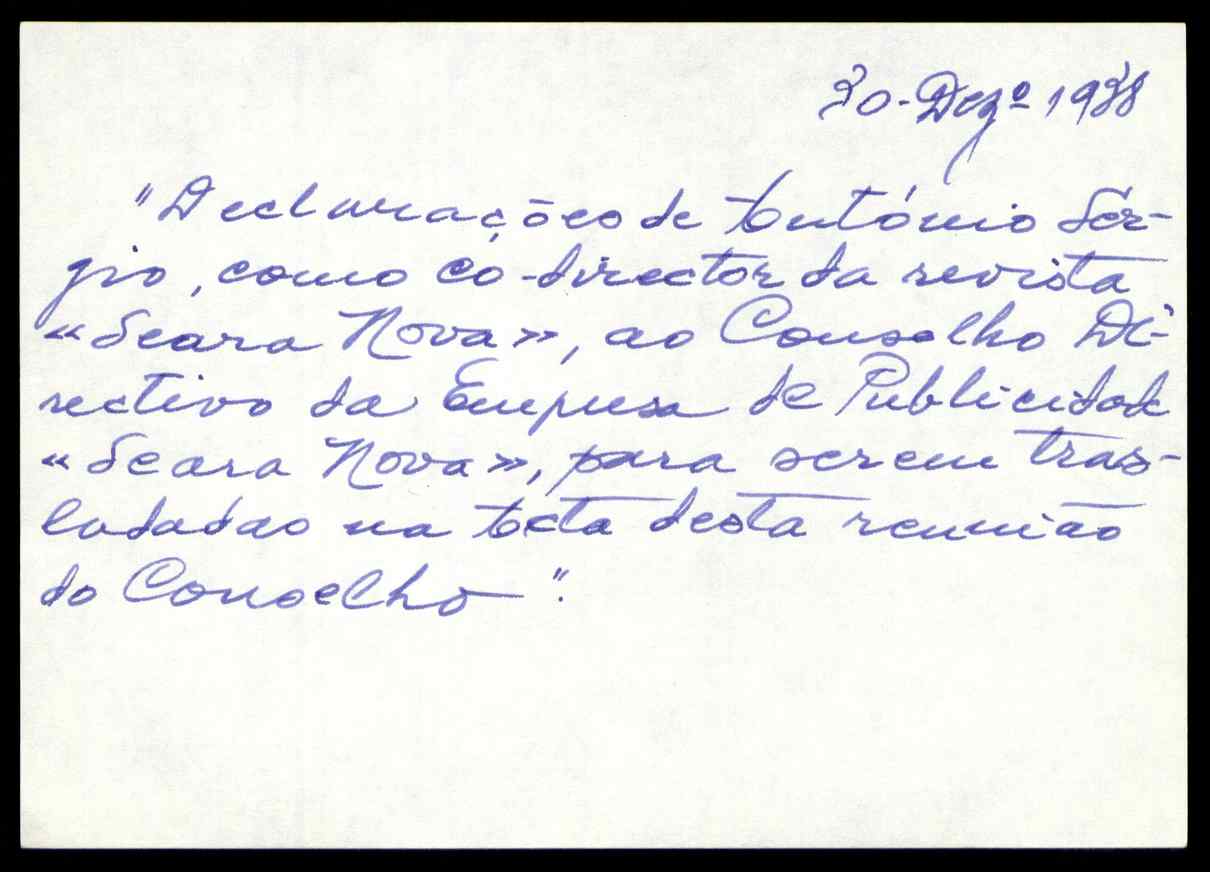 30-Dezº 1938
"Declarações de António Sér-
gio, como co-director da revista
«Seara Nova», ao Conselho Di-
rectivo da Empresa de Publicidade
«Seara Nova», para serem tras-
ladadas na Acta desta reunião
do Conselho".